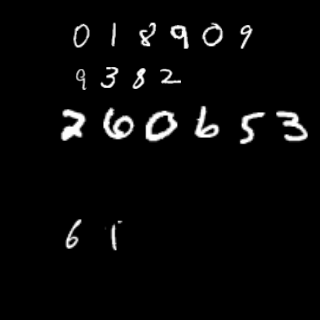 018909
9382
260653
61